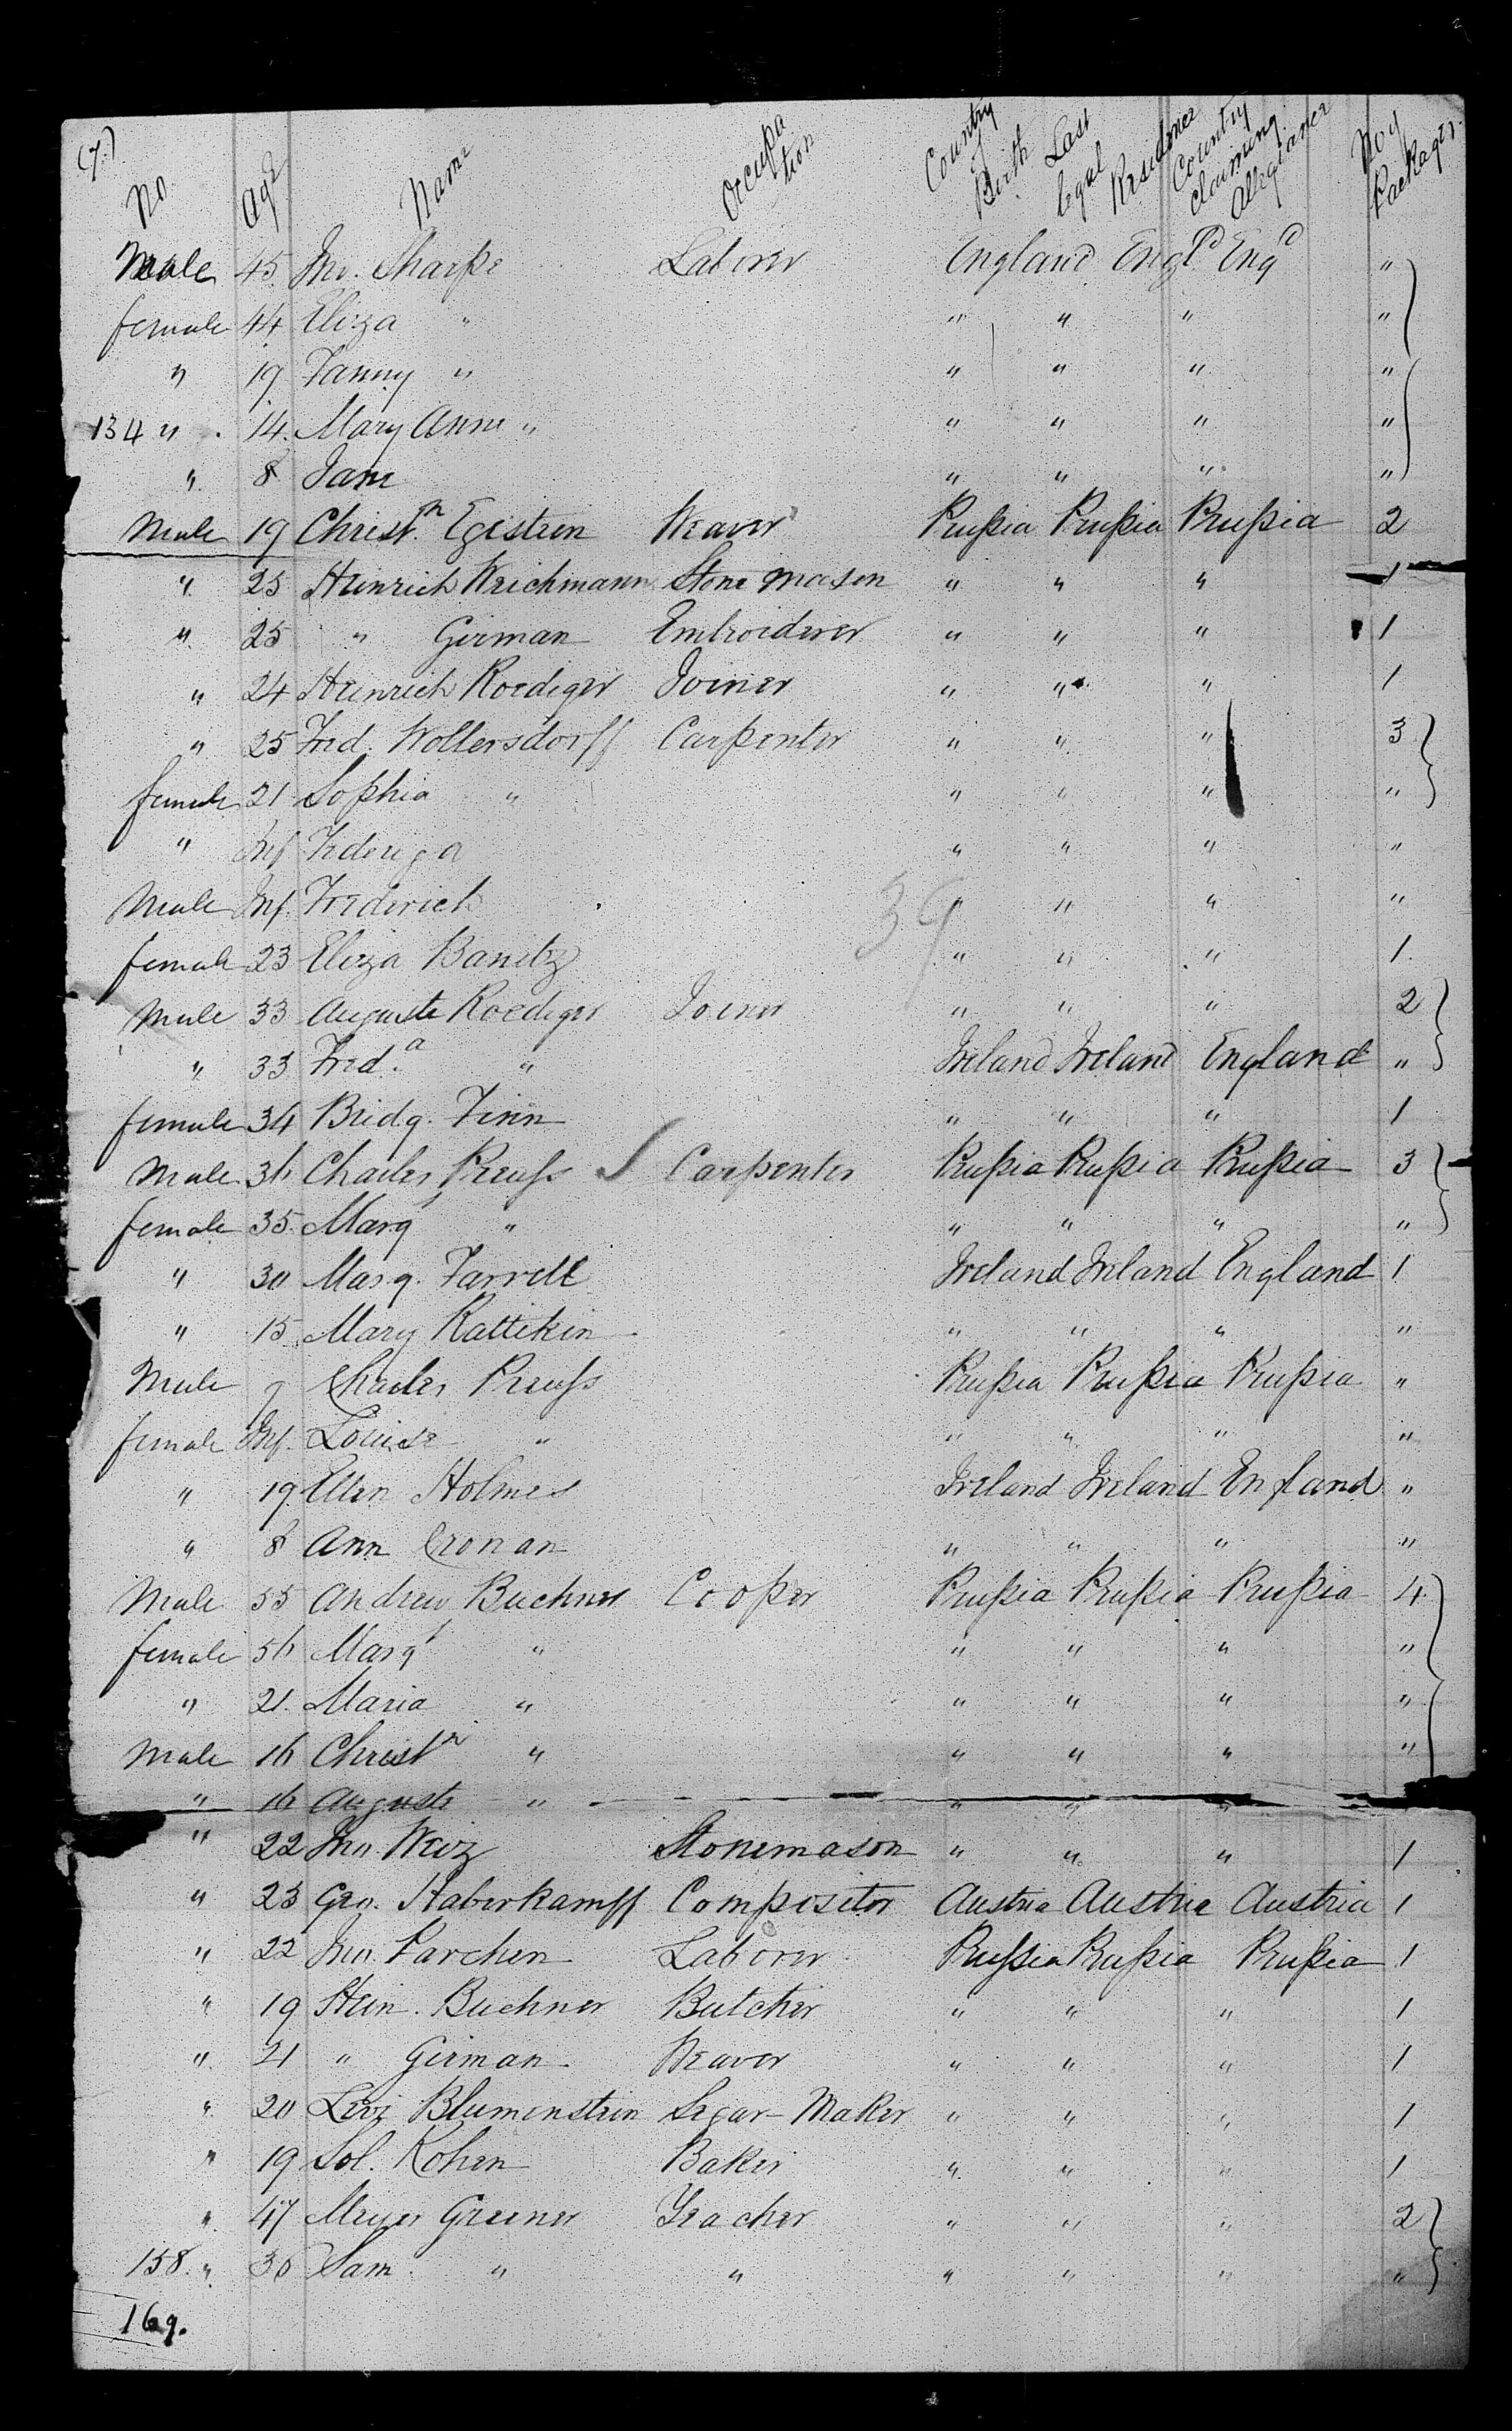 (7.)
No Age Name Occupation Country of Birth Last legal Residence Country claiming Allegiance No of Packages.
Male 45 Jno. Sharpe Laborer England Engld Engd "
female 44 Eliza " " " " "
" 19 Fanny " " " " "
134 " . 14. Mary Anne " " " " "
" 8 Jane " " " "
Male 19 Christn. Egestein Weaver Prußia Prußia Prußia 2
" 25 Heinrich Weichmann Stone mason " " " 1
" 25 " German Embroiderer " " " 1
" 24 Heinrich Roediger Joiner " " " 1
" 25 Fred. Wollersdorff Carpenter " " " 3
female 21 Sophia " " " " "
" Inf " " " "
Male Inf. Frederich " " " "
female 23 Eliza Banitz " " " 1.
Male 33 Auguste Roediger Joiner " " " 2
" 33 Fred.a " Ireland Ireland England "
female 34 Bridg. Finn " " " 1
Male 36 Charles Preuß Carpenter Prußia Prußia Prußia 3
female 35 Marg " " " " "
" 30 Marg. Farrell Ireland Ireland England 1
" 15 Mary Rattikin " " " "
Male 9 Charles Preuß Prußia Prußia Prußia "
female Inf. Louise " " " " "
" 19. Ellen Holmes Ireland Ireland England "
" 8 Ann Cronan " " " "
Male 55 Andrew Buchner Cooper Prußia Prußia Prußia 4
female 56 Marg " " " " "
" 21. Maria " " " " "
Male 16 Christn " " " " "
" 16 Auguste " " " "
" 22 Jno. Weiz Stonemason " " " 1
" 23 Geo. Haberkampff Compositor Austria Austria Austria 1
" 22 Jno. Parchen Laborer Prußia Prußia Prußia 1
" 19 Hein. Buchner Butcher " " " 1
" 21 " German Weaver " " " 1
" 20 Levi Blumenstein Segar-Maker " " " 1
" 19 Sol. Kohen Baker " " " 1
" 47 Meyer Greener Teacher " " " 2
158. " 30 Sam. " " " " " "
169.
39